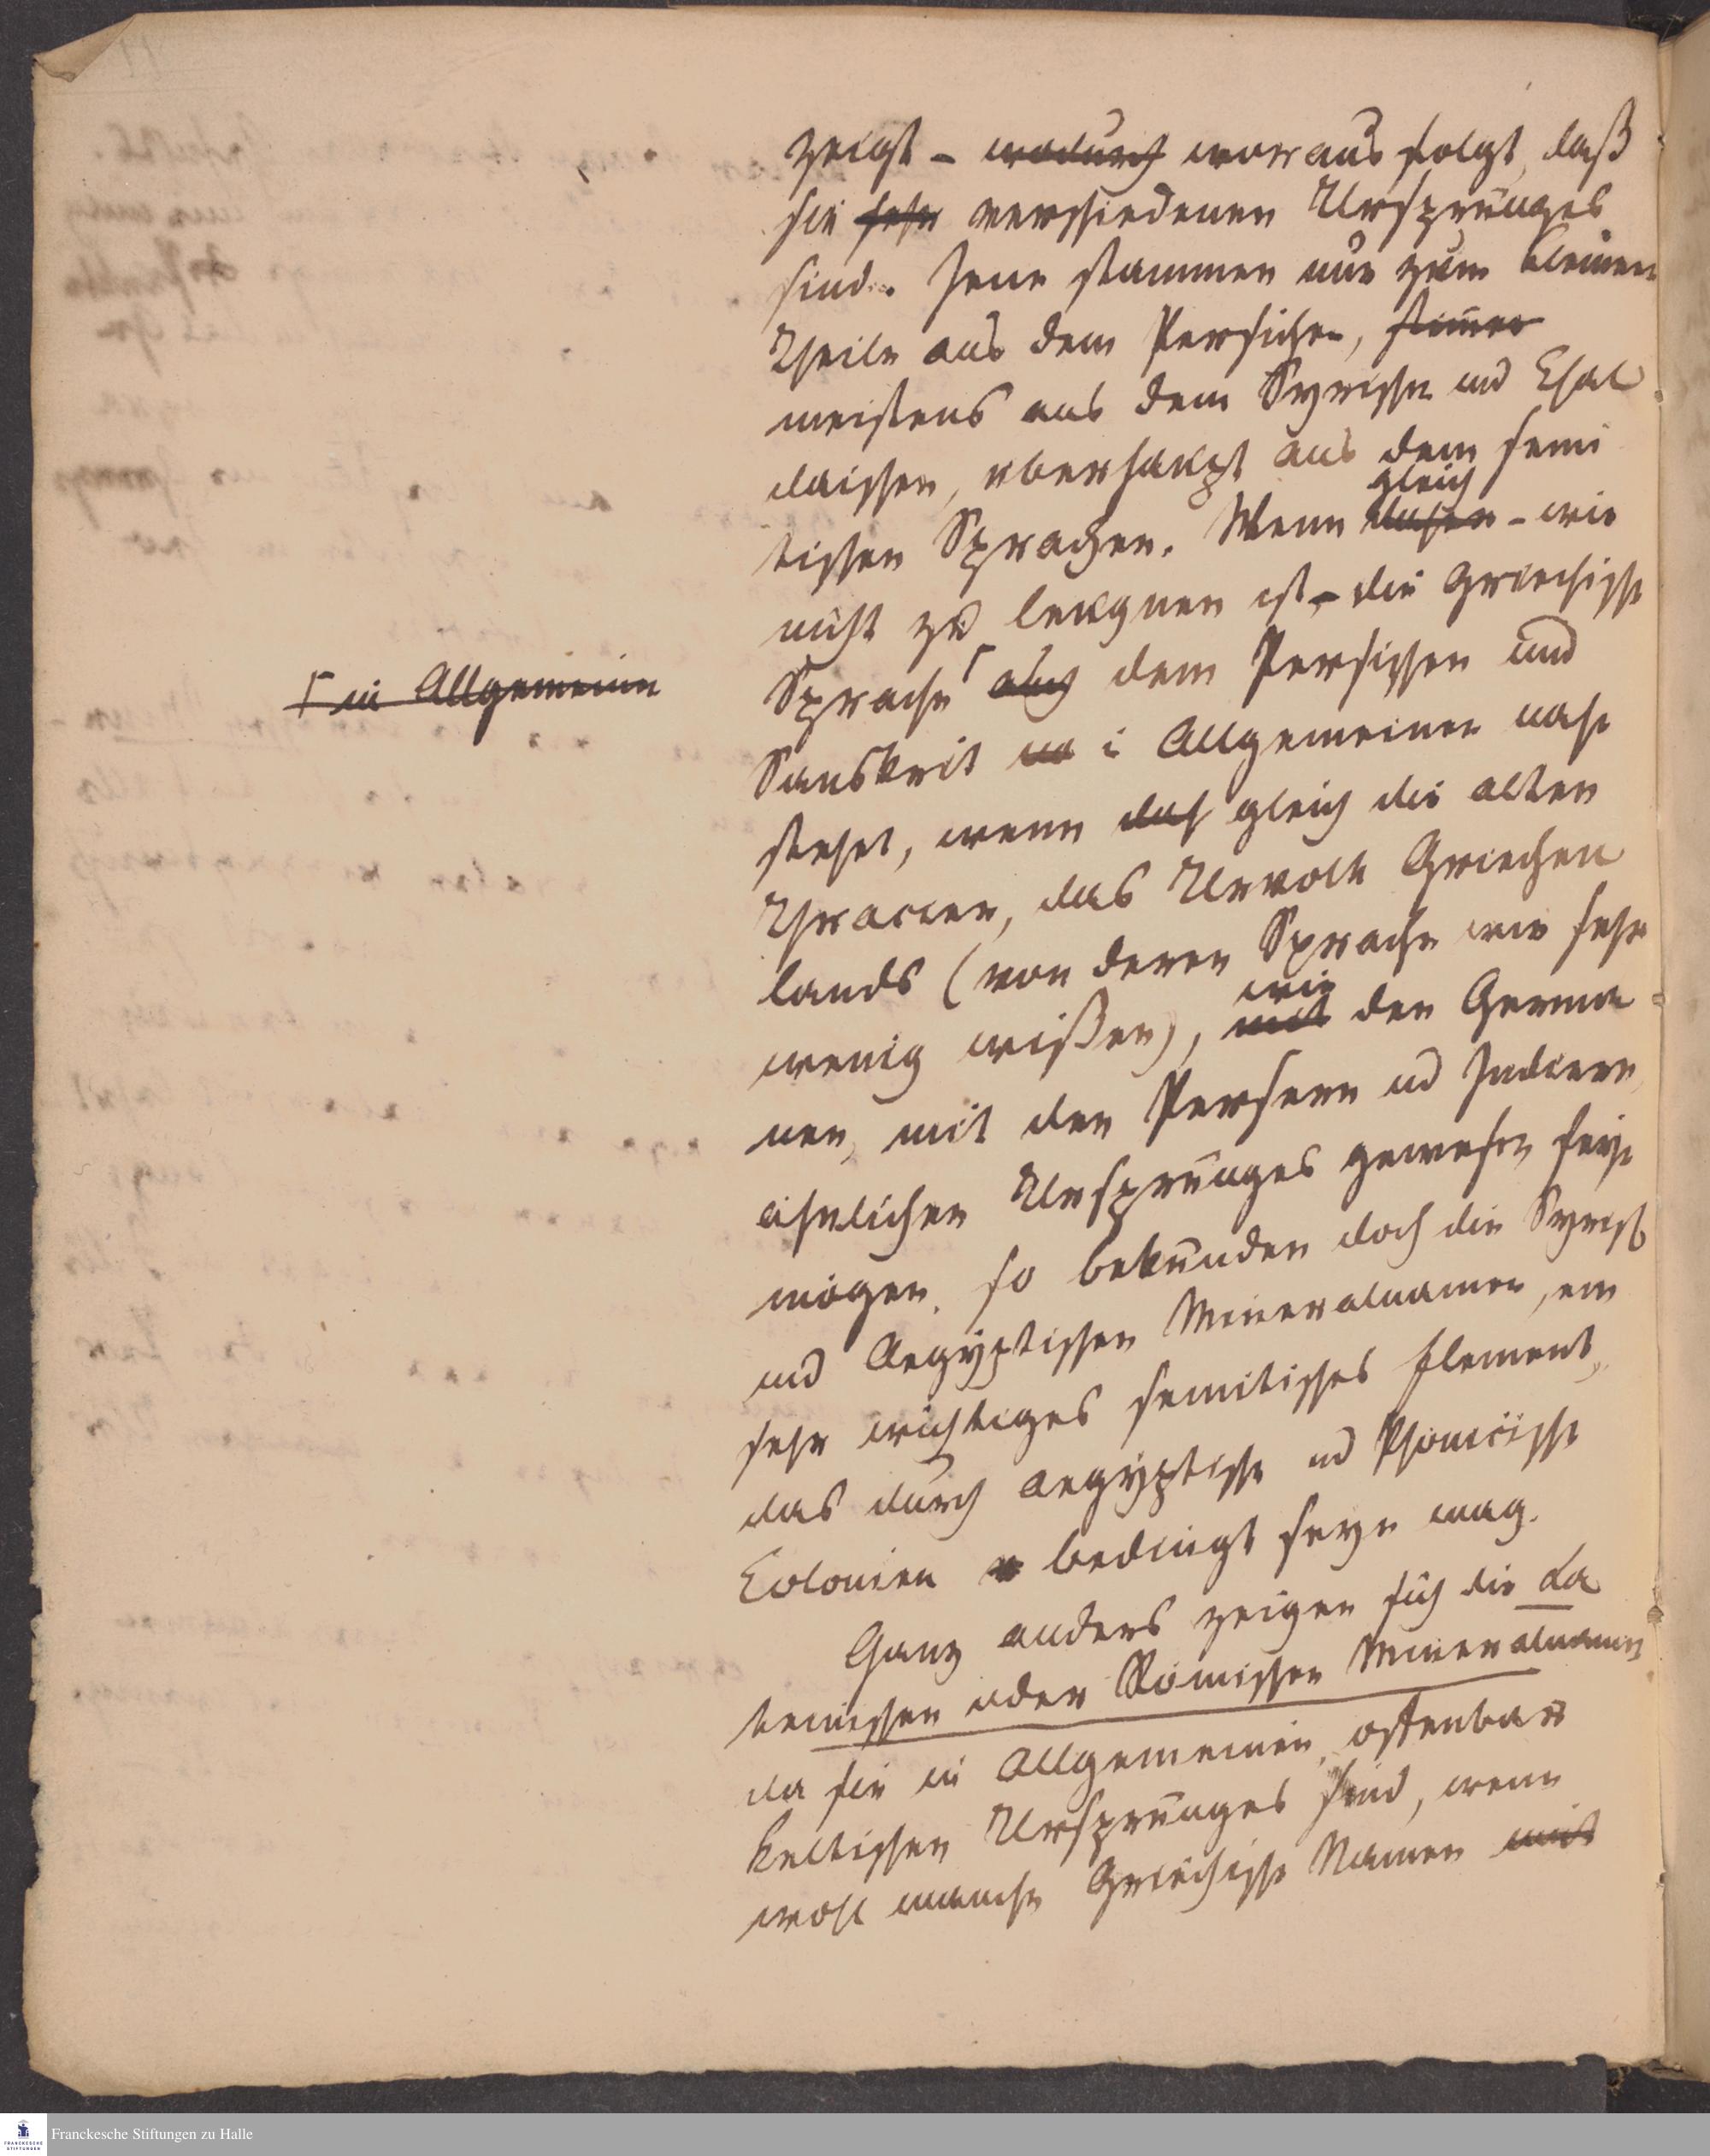 zeigt – wodurch woraus folgt, daß
sie sehr verschiedenen Ursprunges
sind. Jene stammen nur zum kleinen
Theile aus dem Persischen,
meistens aus dem Syrischen und Chal
däischen, überhaupt aus dem semi
gleich
tischen Sprachen. Wenn – wie
nicht zu leugnen ist – die Griechische
Γ im Allgemeinen
Sprache Γ auch dem Persischen und
Sanskrit i Allgemeinen nahe
stehet, wenn auch gleich die alten
Thracier, das Urvolk Griechen
lands (von deren Sprache wir sehr
wie
wenig wißen), mit den Germa
nen, mit den Persern ud Indiern
ähnlichen Ursprunges gewesen seyn
mögen, so bekunden doch die Syrisch
und Aegyptischen Mineralnamen, ein
sehr wichtiges semitisches Element,
das durch Aegyptische ud Phönicische
Colonien bedingt seyn mag.
Ganz anders zeigen sich die La
teinischen oder Römischen Mineralnamen
da sie im Allgemeinen offenbar
keltischen Ursprunges sind, wenn
wohl manche Griechische Namen mit
Franckesche Stiftungen zu Halle
FRANCKESCHE
STIFTUNGEN